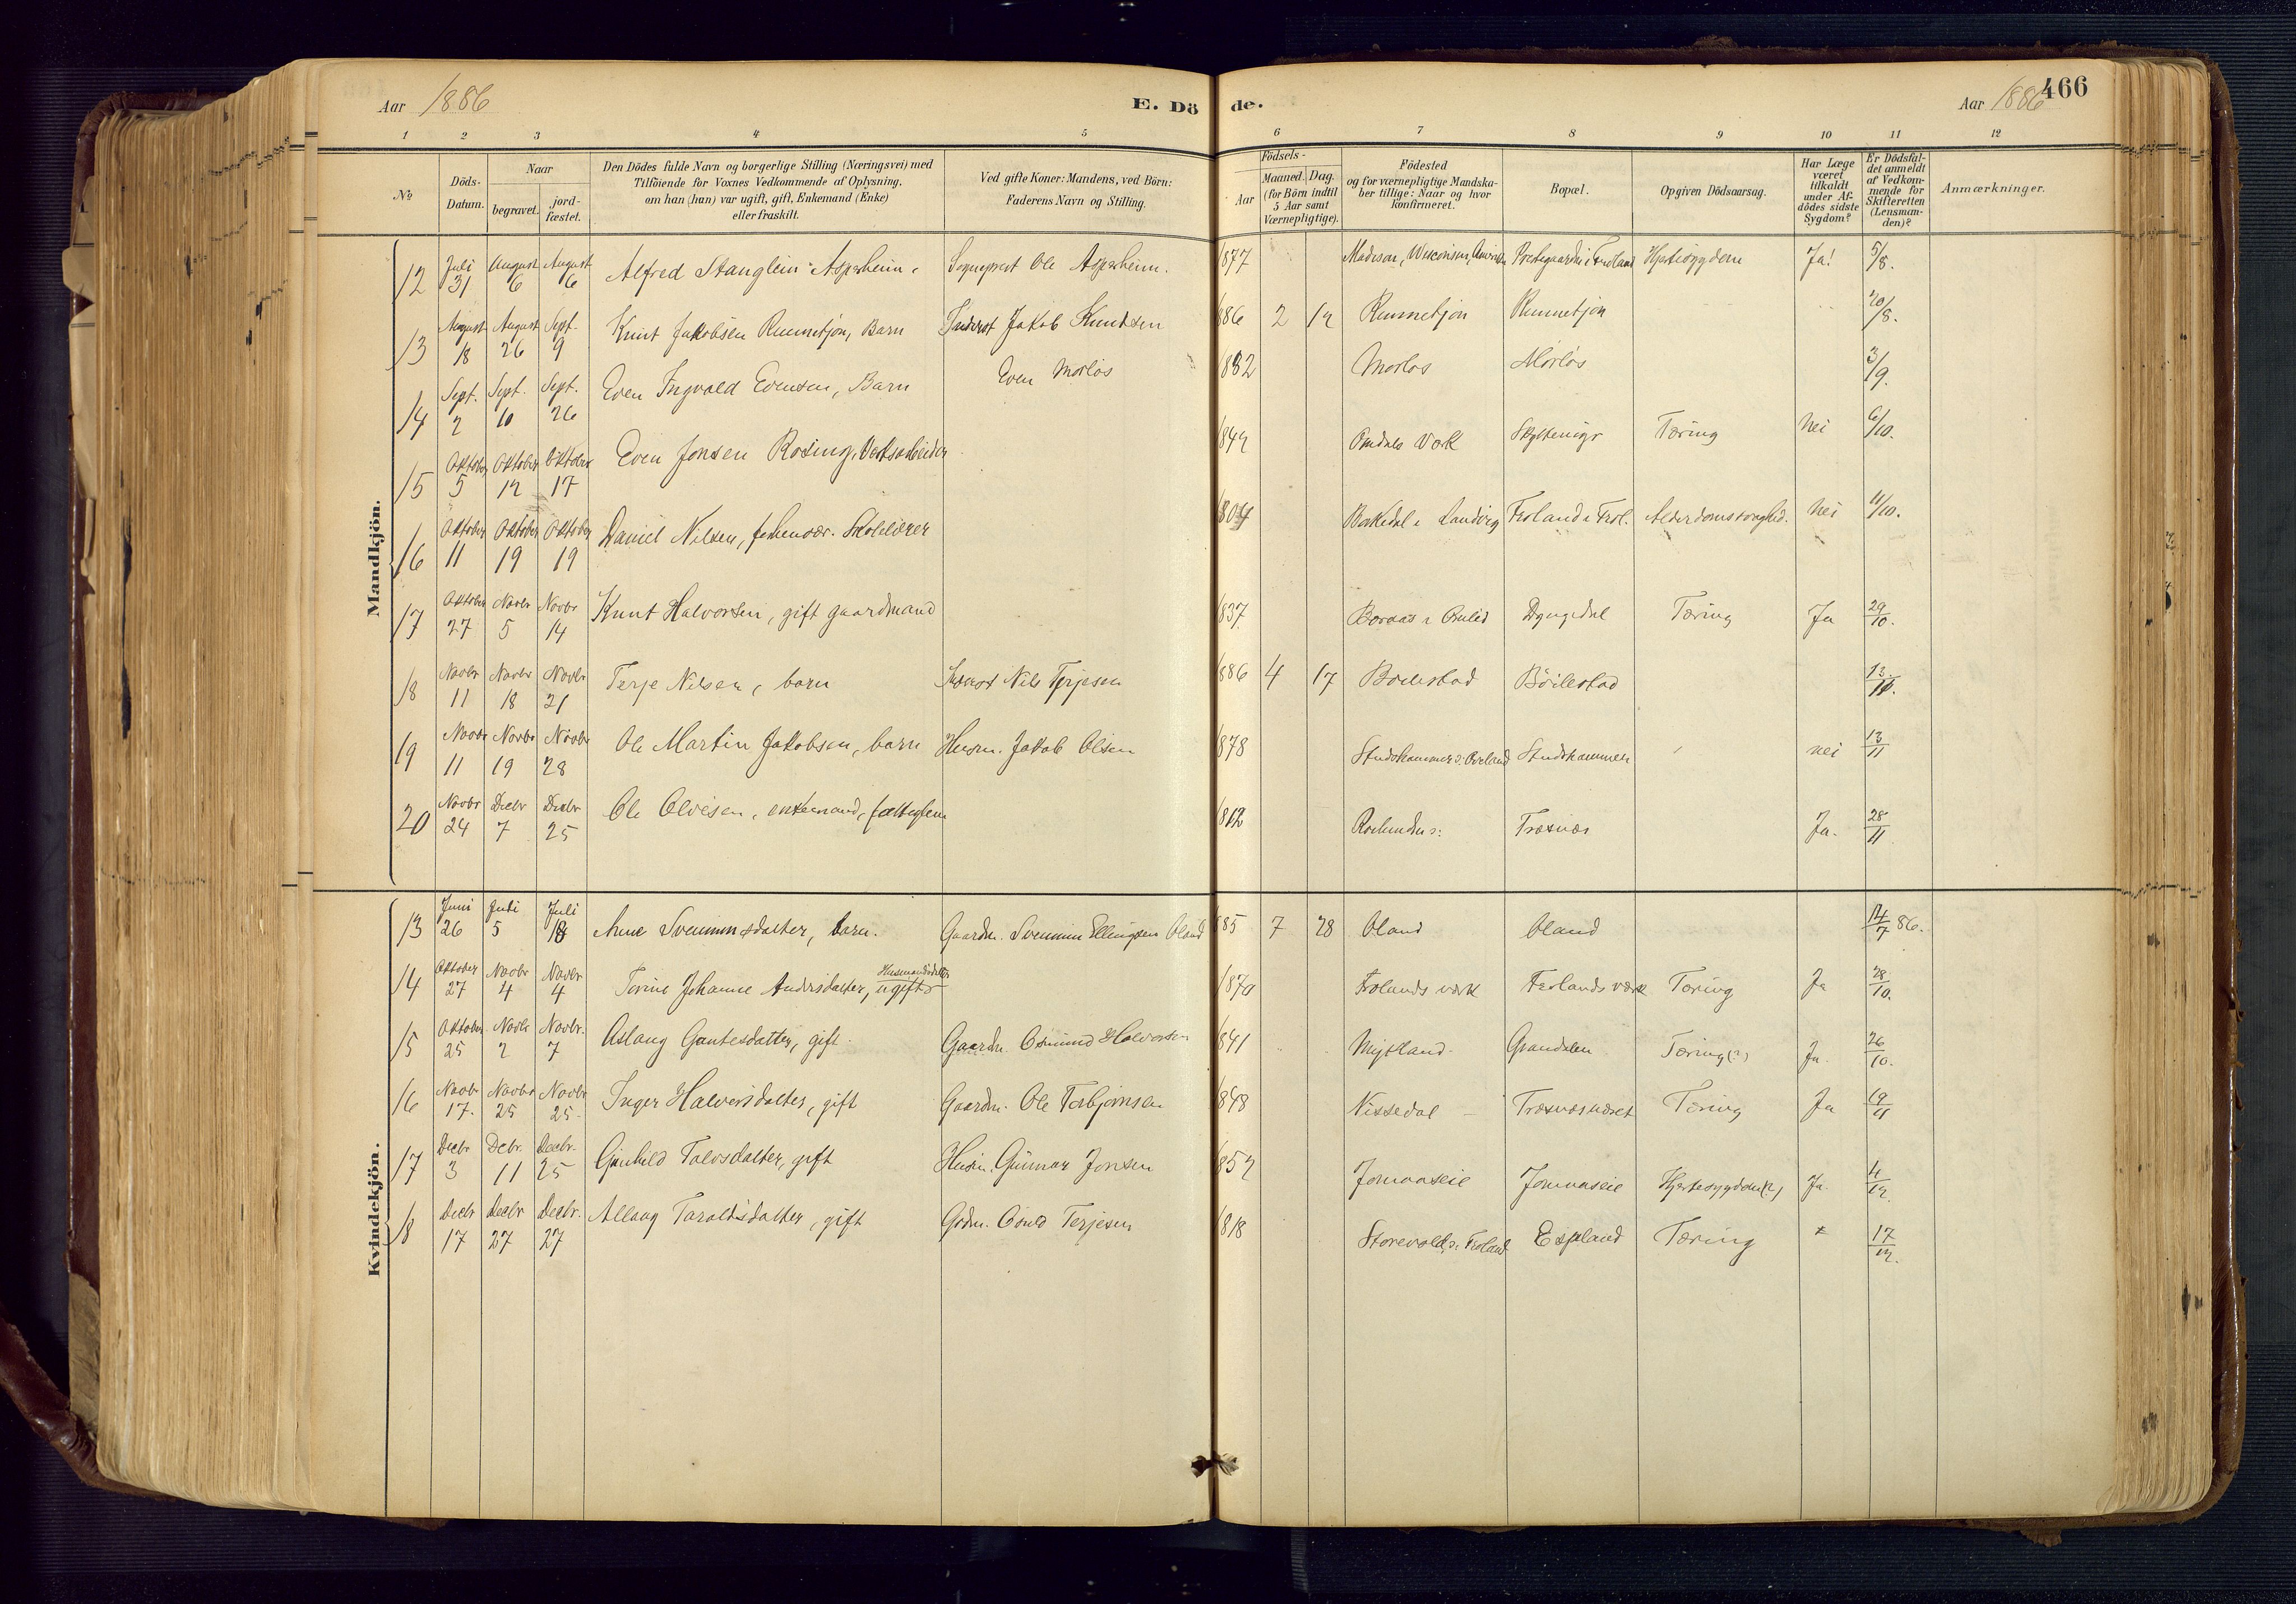 Aar 1886 E. Dö de. Aar 1886 466
1 2 3 4 5 6 7 8 9 10 11 12
No
Döds-Datum.
Naar
begravet.
jord-fæstet.
Den Dödes fulde Navn og borgerlige Stilling (Næringsvei) med
Tilföiende for Voxnes Vedkommende af Oplysning,
om han (hun) var ugift, gift, Enkemand (Enke)
eller fraskilt.
Ved gifte Koner: Mandens, ved Börn:
Faderens Navn og Stilling.
Födsels-
Aar
Maaned. Dag.
(for Börn indtil
5 Aar samt
Værnepligtige).
Födested
og for værnepligtige Mandska-
ber tillige: Naar og hvor
konfirmeret.
Bopæl.
Opgiven Dödsaarsag.
Har Læge
været
tilkaldt
under Af-
dödes sidste
Sygdom?
Er Dödsfal-
det anmeldt
af Vedkom-
mende for
Skifteretten
(Lensman-
den)?
Anmærkninger.
Mandkjön.
12 Juli 31 August 6 August 6 Alfred Stanglein Asperheim, Sogneprest Ole Asperheim. 1877 Madison, Wisconsin, Amerika Prestegaarden i Froland Hjertesygdom Ja! 5/8.
13 August 18 August 26 Sept. 9 Knut Jakobsen Rumnetjön, Barn Inderst Jakob Knudsen 1886 2 12 Rumnetjön Rumnetjön 20/8.
14 Sept. 2 Sept. 10 Sept. 26 Even Ingvald Evensen, Barn Even Mörlös 1882 Mörlös Mörlös 3/9.
15 Oktober 5 Oktober 12 Oktober 17 Even Jonsen Rosing, Verksarbeider 1842 Omdals Verk Tæring Nei 6/10.
16 Oktober 11 Oktober 19 Oktober 19 Daniel Nilsen, forhenvær. Skolelærer 1804 i Landvig Froland i Frol. Alderdomssvaghed. Nei 11/10.
17 Oktober 27 Novbr 5 Novbr 14 Knut Halvorsen, gift gaardmand 1837 Boraas i Dyngedal Tæring Ja 29/10.
18 Novbr 11 Novbr 18 Novbr 21 Terje Nilsen, barn Inderst Nils Terjesen 1886 4 17 Böilestad Böilestad 13/11.
19 Novbr 11 Novbr 19 Novbr 28 Ole Martin Jakobsen, barn Husm. Jakob Olsen 1878 Studehammer Studehammer nei 13/11
20 Novbr 24 Decbr 7 Decbr 25 Ole Olvesen, enkemand, fattiglem 1812 Træsnæs Ja. 28/11
Kvindekjön.
13 Juni 26 Juli 5 Juli 18 Anne Svenumsdatter, barn. Gaardm. Svenum Ellingsen Oland 1885 7 28 Oland Oland 14/7 86.
14 Oktober 27 Novbr 4 Novbr 4 Torine Johanne Andersdatter, Husmandsdatter ugift 1870 Frolands værk Frolands værk Tæring Ja 28/10.
15 Oktober 25 Novbr 2 Novbr. 7 Aslaug Gautesdatter, gift. Gaardm. Osmund Halvorsen 1841 Mykland Grandalen Tæring (?) Ja. 26/10.
16 Novbr 17. Novbr 25 Novbr 25 Inger Halvorsdatter, gift Gaardm. Ole Torbjørnsen 1848 Nissedal Træsnæsnæset Tæring Ja 19/11
17 Decbr 3 Decbr. 11 Decbr. 25 Gunhild Talvsdatter, gift Husm. Gunnar Jonsen 1852 Jomaaseie Jomaaseie Hjertesygdom (?) Ja. 4/12.
18 Decbr 17 Decbr 27 Decbr. 27 Allaug Taraldsdatter, gift Grdm. Osuld Terjesen 1818 Storevold, i Froland Espland Tæring 17/12.